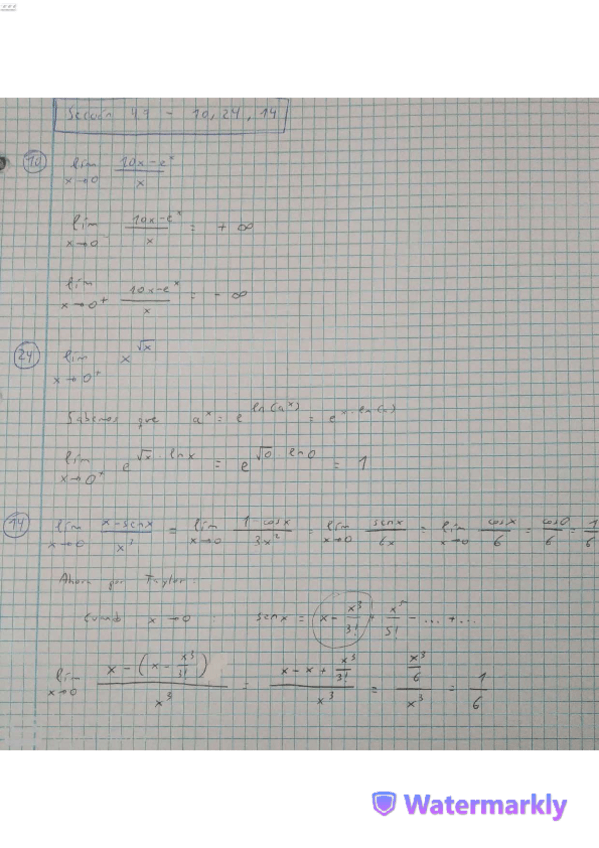 Sección 4.7 - 10, 24, 14
10 lim x→0 (10x-e^x)/x
lim x→0⁻ (10x-e^x)/x = +∞
lim x→0⁺ (10x-e^x)/x = -∞
24 lim x→0⁺ x^√x
Sabemos que a^x = e^ln(a^x) = e^x·ln(a)
lim x→0⁺ e^√x·ln x = e^√0·ln 0 = 1
14 lim x→0 (x-senx)/x³ = lim x→0 (1-cosx)/3x² = lim x→0 senx/6x = lim x→0 cosx/6 = cos0/6 = 1/6
Ahora por Taylor:
Cuando x→0 : senx = x - x³/3! + x⁵/5! - ... + ...
lim x→0 (x-(x-x³/3!))/x³ = (x-x+x³/3!)/x³ = (x³/6)/x³ = 1/6
Watermarkly